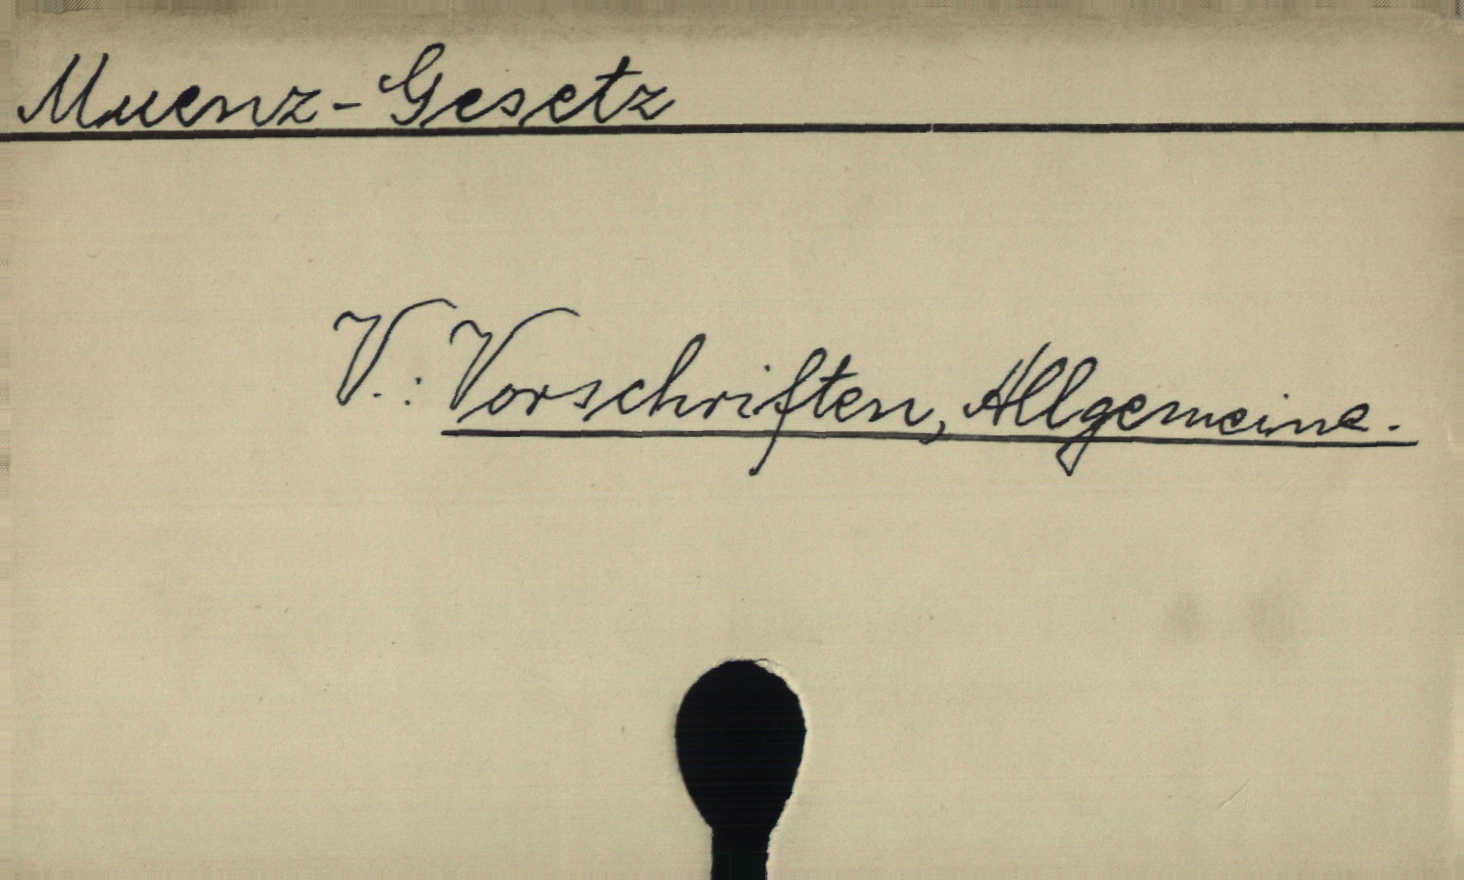 Muenz-Gesetz
V.: Vorschriften, Allgemeine.